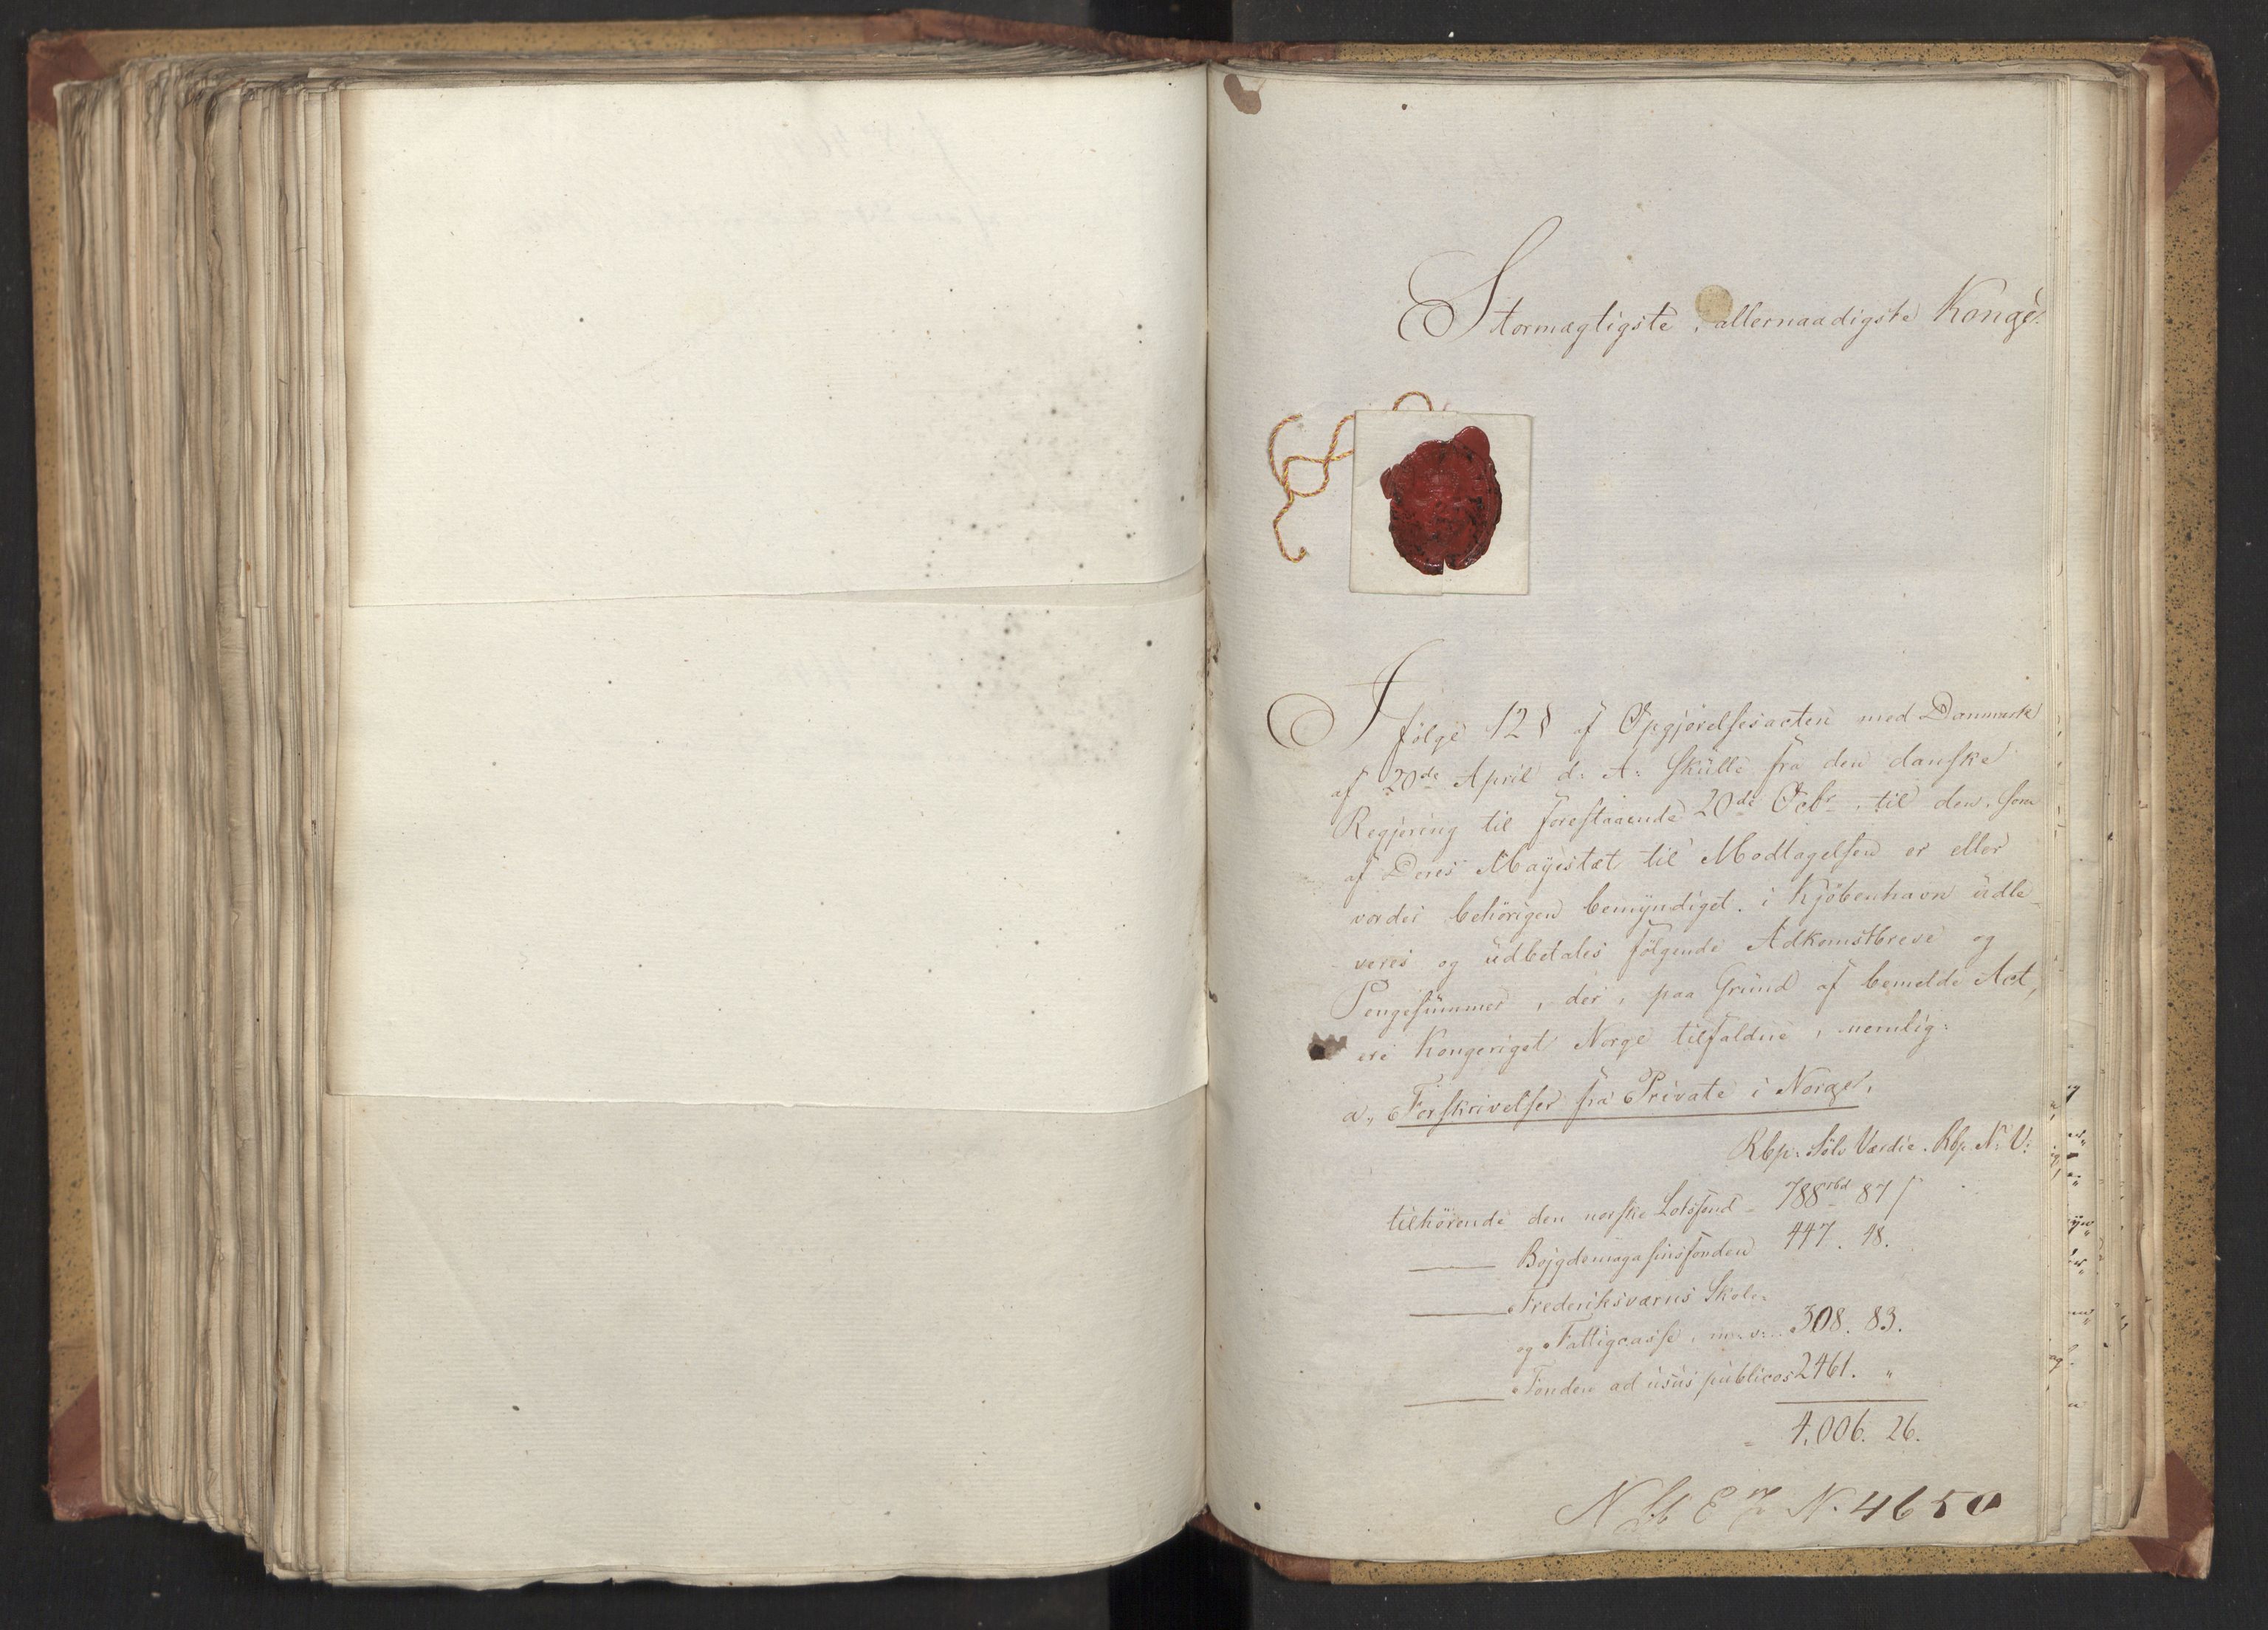 Stormægtigste, allernaadigste Konge!
Ifølge 12 § af Opgjørelsesacten med Danmark
af 20de April d: A: skulle fra den danske
Regjering til forestaaende 20de Octbr til den, som
af Deres Mayestæt til Modtagelsen er eller
vorder behörigen bemyndiget, i Kjöbenhavn udle-
veres og udbetales fölgende Adkomstbreve og
Pengesummer, der, paa Grund af bemeldte Act,
ere Kongeriget Norge tilfaldne, nemlig:
a, Forskrivelser fra Private i Norge.
Rbp: Sölv Værdie. Rbp. N: V:
tilhörende den norske Lotsfond - 788 rbd 87 s
——— Bøjgdemagasinsfonden 447. 48.
——— Frederiksværns Skole-
og Fattigcasse, m. v. .. 308. 83.
——— Fonden ad usus publicos 2461. "
4,006. 26.
N St E N. 4650